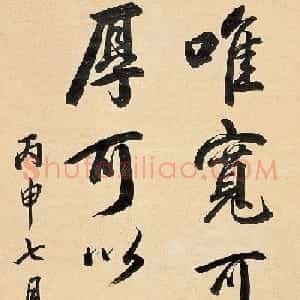 唯寬可
厚可以
丙申七月
Shufaziliao.com